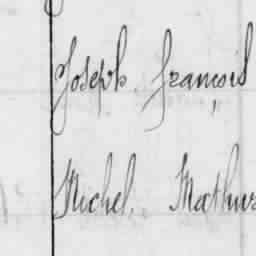 Joseph François
Michel, Mathur